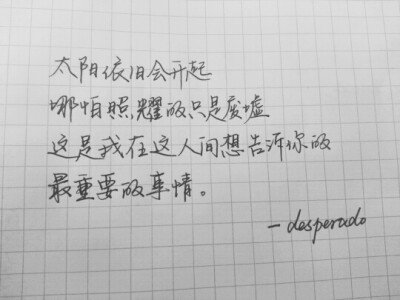 太阳依旧会升起
哪怕照耀的只是废墟
这是我在这人间想告诉你的
最重要的事情。
—desperado